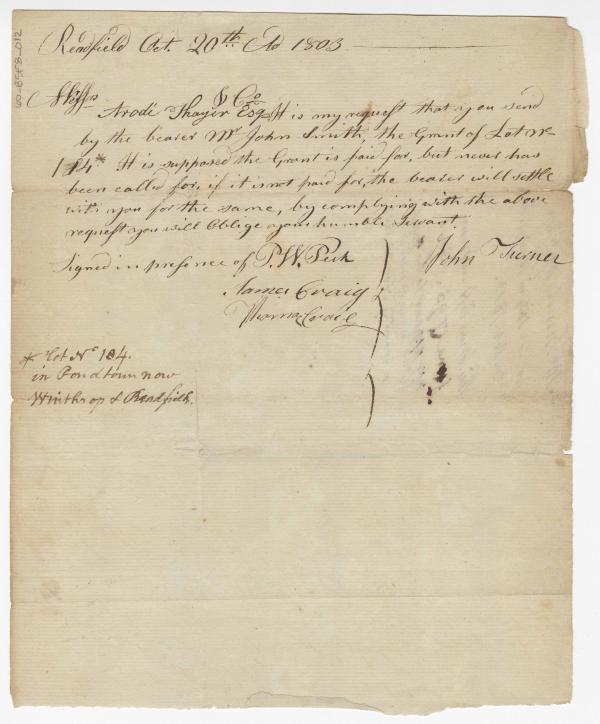 Readfield Oct. 20th AD 1803
Messrs
& Co
Arodi Thayer Esqr It is my request that you send
by the bearer Mr John Smith, the Grant of Lot No
184* It is supposed the Grant is paid for, but never has
been called for, if it is not paid for, the bearer will settle
with you for the same, by complying with the above
request you will Oblige your humble Servant.
Signed in presence of P. W. Peck John Turner
James Craig
Craig
* Lot No 184.
in Pondtown now
Winthrop & Readfield.